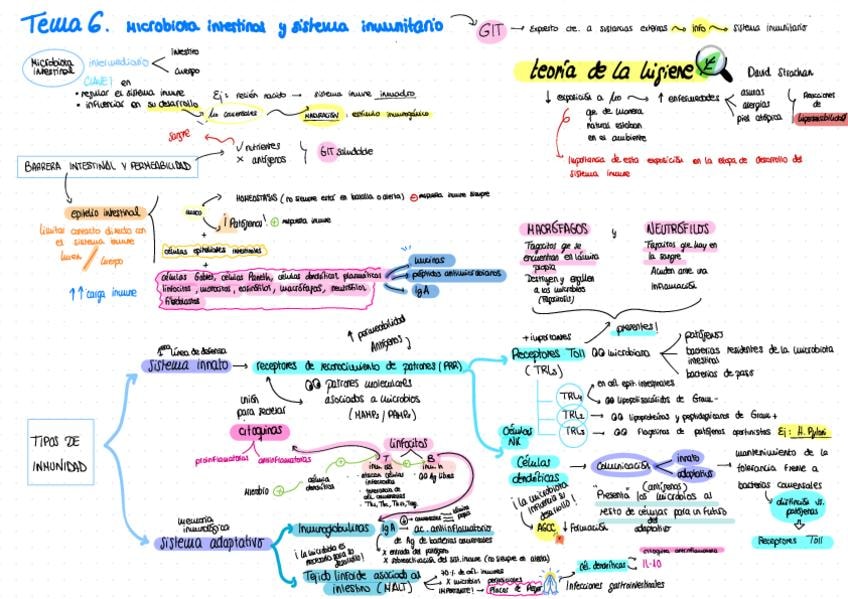 Tema 6. Microbiota intestinal y sistema inmunitario
GIT → Expuesto cte. a sustancias externas → info → sistema inmunitario
Microbiota intestinal
intermediario
intestino
cuerpo
CLAVE! en
• regular el sistema inmune
• influenciar en su desarrollo
Ej: recién nacido → sistema inmune inmaduro
MADURACIÓN: estímulo inmunogénico
teoría de la higiene
David Strachan
↓ exposición a
que de manera
natural estaban
en el ambiente
↑ enfermedades
asmas
alergias
piel atópica
Reacciones
de
hipersensibilidad!
Importancia de esta exposición en la etapa de desarrollo del
sistema inmune
BARRERA INTESTINAL Y PERMEABILIDAD
sangre
✓ nutrientes
× antígenos
GIT saludable
epitelio intestinal
limitar contacto directo con
el sistema inmune
lumen / cuerpo
↑↑ carga inmune
moco
HOMEOSTASIS (no siempre está en batalla o alerta) ⊖ respuesta inmune siempre
¡Patógenos! ⊕ respuesta inmune
+
células epiteliales intestinales
+
células Goblet, células Paneth, células dendríticas plasmáticas
linfocitos, monocitos, eosinófilos, macrófagos, neutrófilos
fibroblastos
mucinas
péptidos antimicrobianos
IgA
MACRÓFAGOS y NEUTRÓFILOS
Fagocitos que se
encuentran en lámina
propia
Destruyen y engullen
a los microbios
(Fagocitosis)
Fagocitos que hay en
la sangre
Acuden ante una
inflamación
presentes!
TIPOS DE
INMUNIDAD
1era línea de defensa
Sistema innato
receptores de reconocimiento de patrones (PRR)
↑ permeabilidad
Antígenos
patrones moleculares
asociados a microbios
(MAMPs / PAMPs)
unión
para secretar
citoquinas
proinflamatorias
antiinflamatorias
linfocitos
T
B
Microbio
célula
dendrítica
+ importantes
Receptores Toll
(TRLs)
microbiota
patógenos
bacterias residentes de la microbiota
intestinal
bacterias de paso
TRL4
en cél. epit. intestinales
lipopolisacáridos de Gram -
TRL2
lipoproteínas y peptidoglicanos de Gram +
TRL5
Flagelina de patógenos oportunistas Ej: H. Pylori
Células
NK
Células
dendríticas
comunicación
innato
adaptativo
mantenimiento de la
tolerancia frente a
bacterias comensales
distinción vs.
patógenos
Receptores Toll
¡la microbiota
influencia su
desarrollo!
(antígenos)
"Presenta" los microbios al
resto de células para un futuro
adaptativo
AGCC ↓ Formación del
cél. dendríticas
citoquina antiinflamatoria
IL-10
memoria
inmunológica
Sistema adaptativo
Inmunoglobulinas
IgA
ac. antiinflamatorio
de Ag de bacterias comensales
× entrada del patógeno
× sobreactivación del sist. inmune (no siempre en alerta)
¡la microbiota es
necesaria para su
desarrollo!
Tejido linfoide asociado al
intestino (MALT)
70% de cél. inmunes
× microbios perjudiciales
IMPORTANTE! → Placas de Peyer
Infecciones gastrointestinales